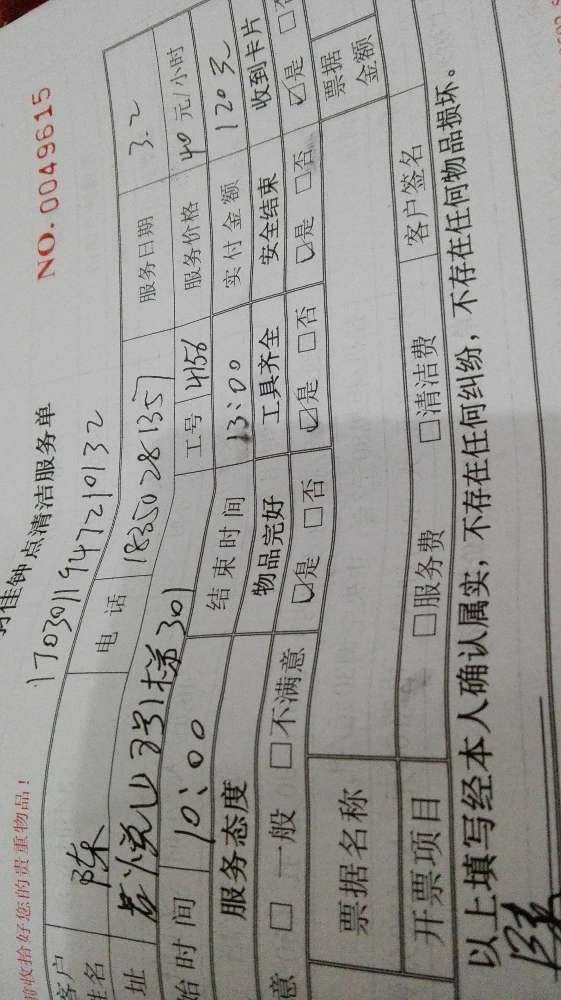 收拾好您的贵重物品！
NO. 0049615
佳钟点清洁服务单
1703011947210132
客户 陈 电话 18350281357 服务日期 3.2
姓名
址 梯301 工号 4156 服务价格 40元/小时
始时间 10:00 结束时间 13:00 实付金额 120元
服务态度 物品完好 工具齐全 安全结束 收到卡片
意 □一般 □不满意 ☑是 □否 ☑是 □否 ☑是 □否 ☑是 □否
票据名称 票据金额
开票项目 □服务费 □清洁费 客户签名
以上填写经本人确认属实，不存在任何纠纷，不存在任何物品损坏。
陈